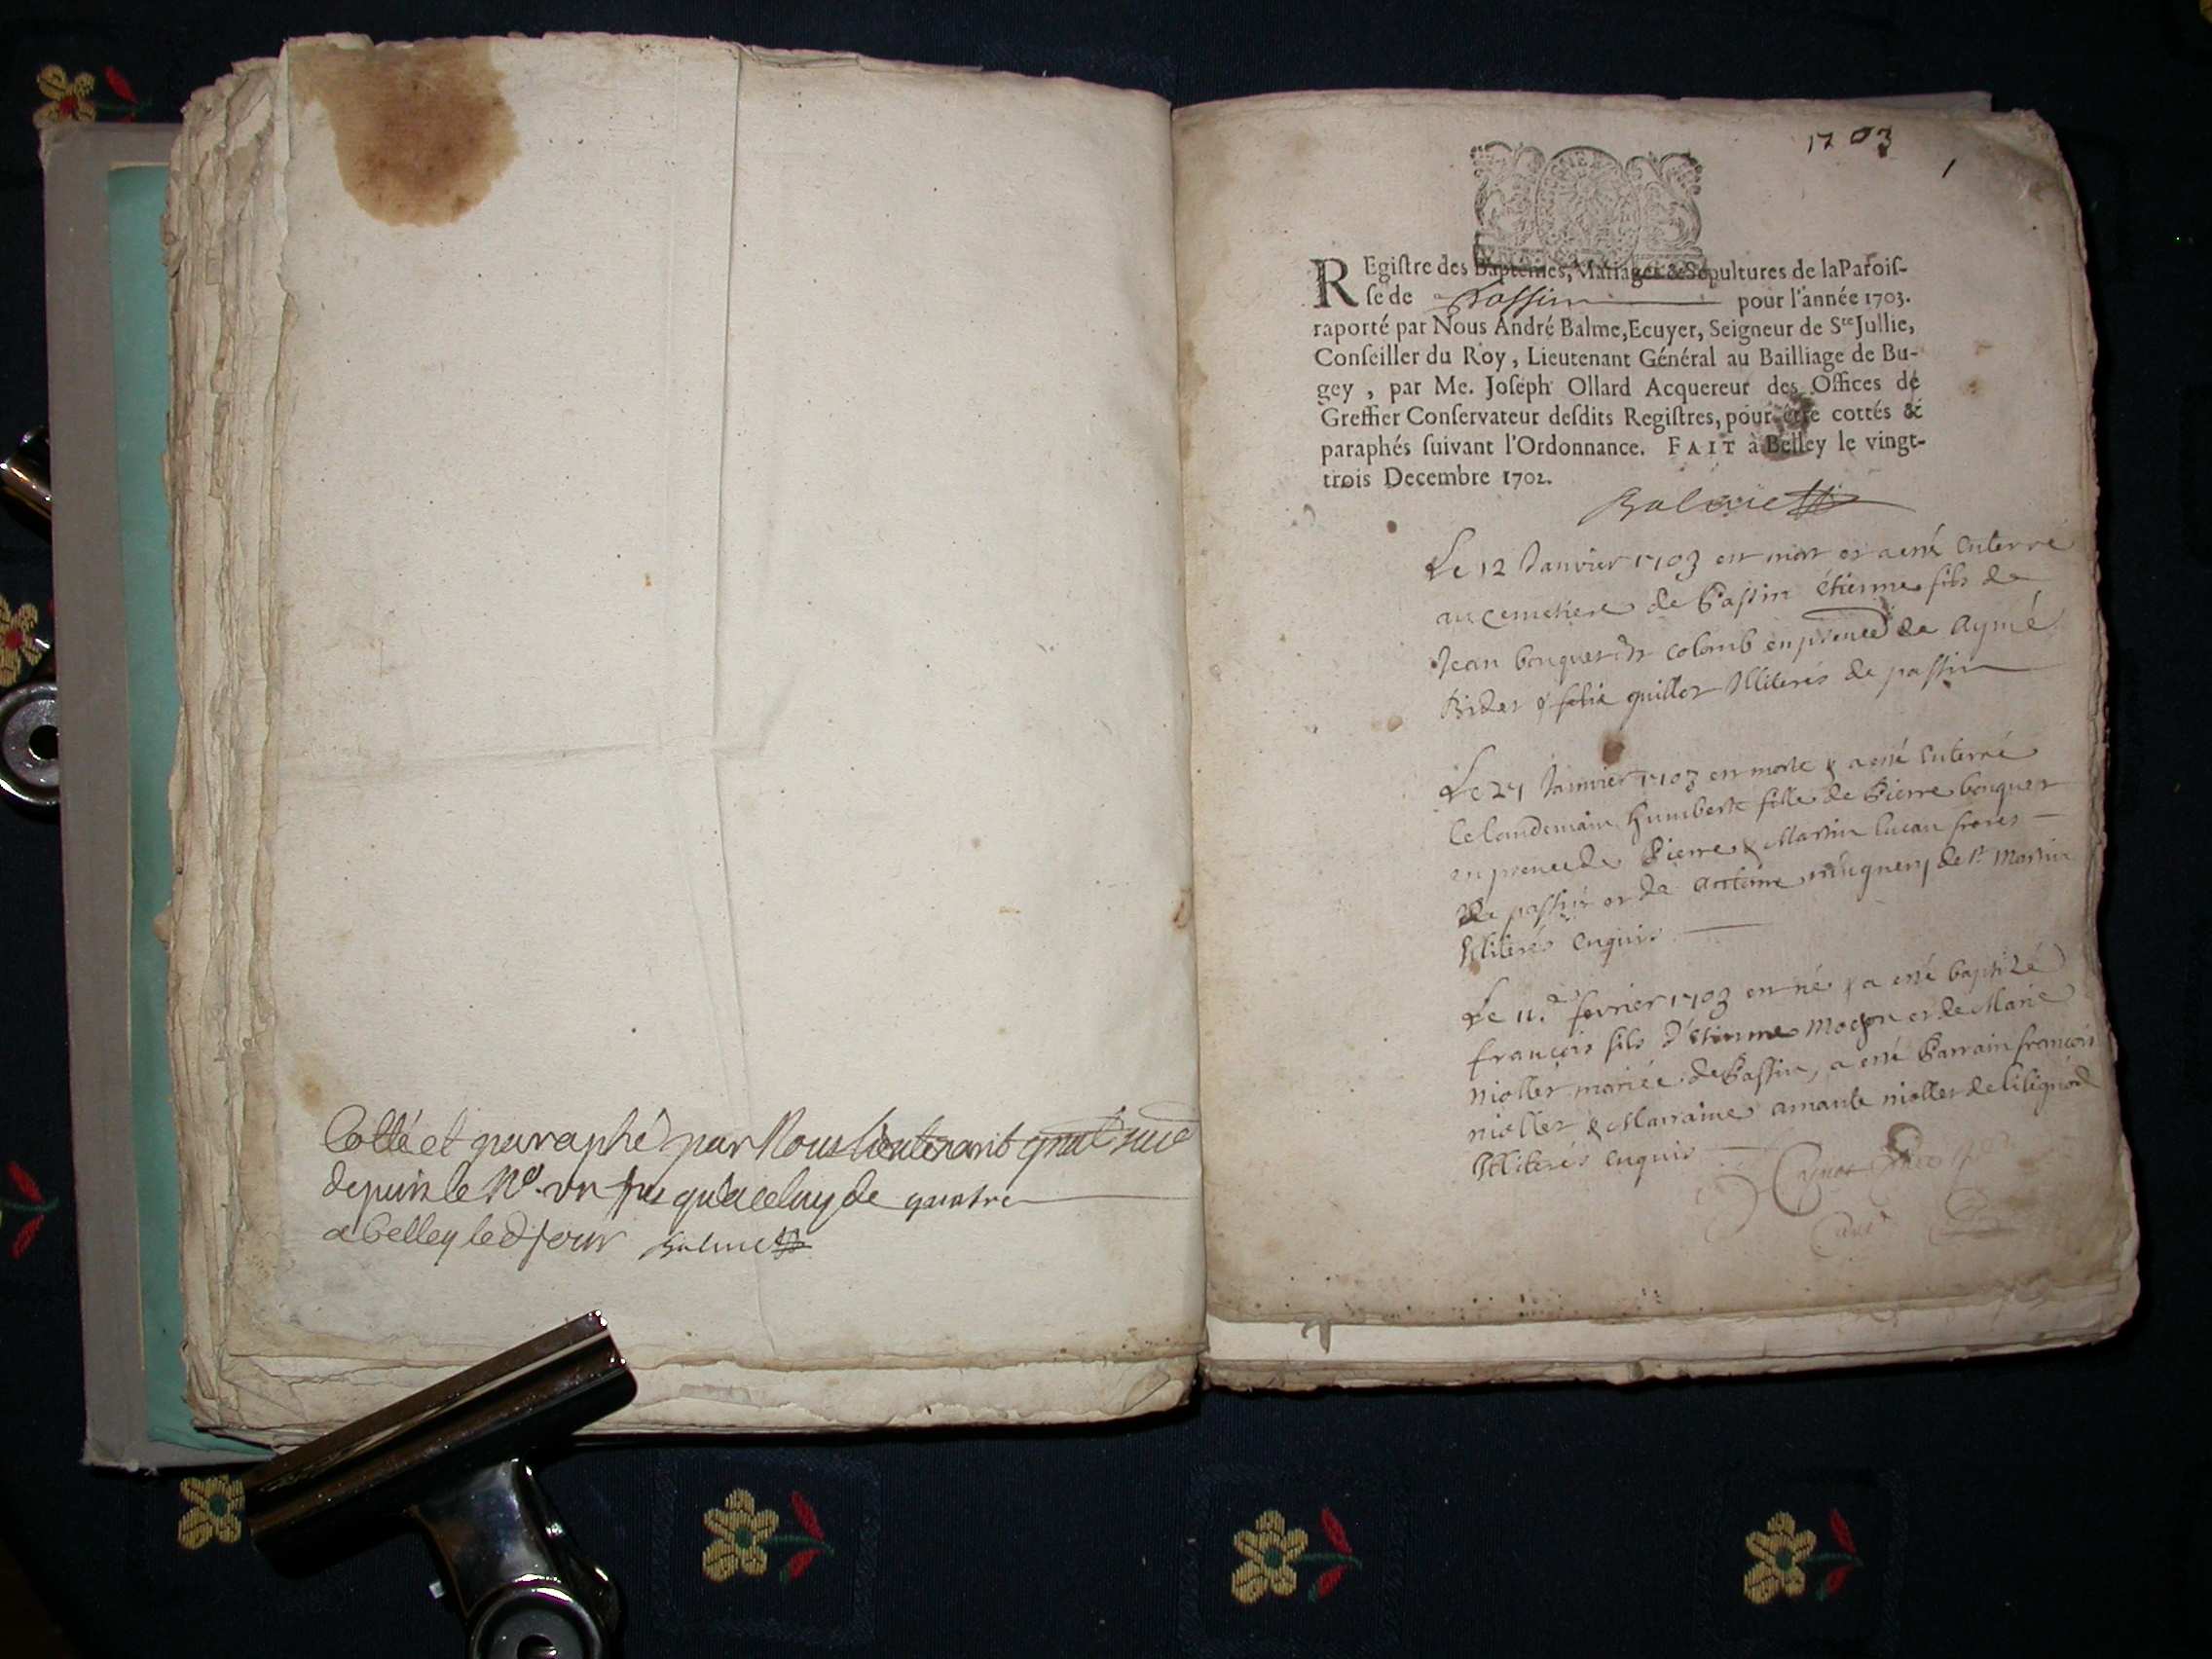 Cotté et paraphé par Nous Lieutenant gnal susd
depuis le N° un jusqu'a celuy de quatre
a Belley led jour Balme
1703
1
REgiſtre des Baptêmes, Mariages & Sepultures de la Paroiſ-
ſe de Passin pour l'année 1703.
raporté par Nous André Balme, Ecuyer, Seigneur de Ste Jullie,
Conſeiller du Roy, Lieutenant Général au Bailliage de Bu-
gey, par Me. Joſeph Ollard Acquereur des Offices de
Greffier Conſervateur deſdits Regiſtres, pour être cottés &
paraphés ſuivant l'Ordonnance. FAIT à Belley le vingt-
trois Decembre 1702.
Balme
Le 12 Janvier 1703 est mort et a esté enterré
au cemetiere de Passin Étienne fils de
Jean bonquet dt colomb en pnce de Aymé
Bidet & guillot Illiterés de passin
Le 24 Janvier 1703 est morte & a esté enterré
le landemain humberte fille de Pierre bonquet
en pnce de Pierre & Martin lucan freres
de passin et de de St Martin
Illiterés enquis
Le 11.e fevrier 1703 est né & a esté baptizé
françois fils d'étienne et de Marie
niollet mariée de Passin, a esté Parrain françois
niollet & Marraine niollet de lilignod
Illiterés enquis
Curé